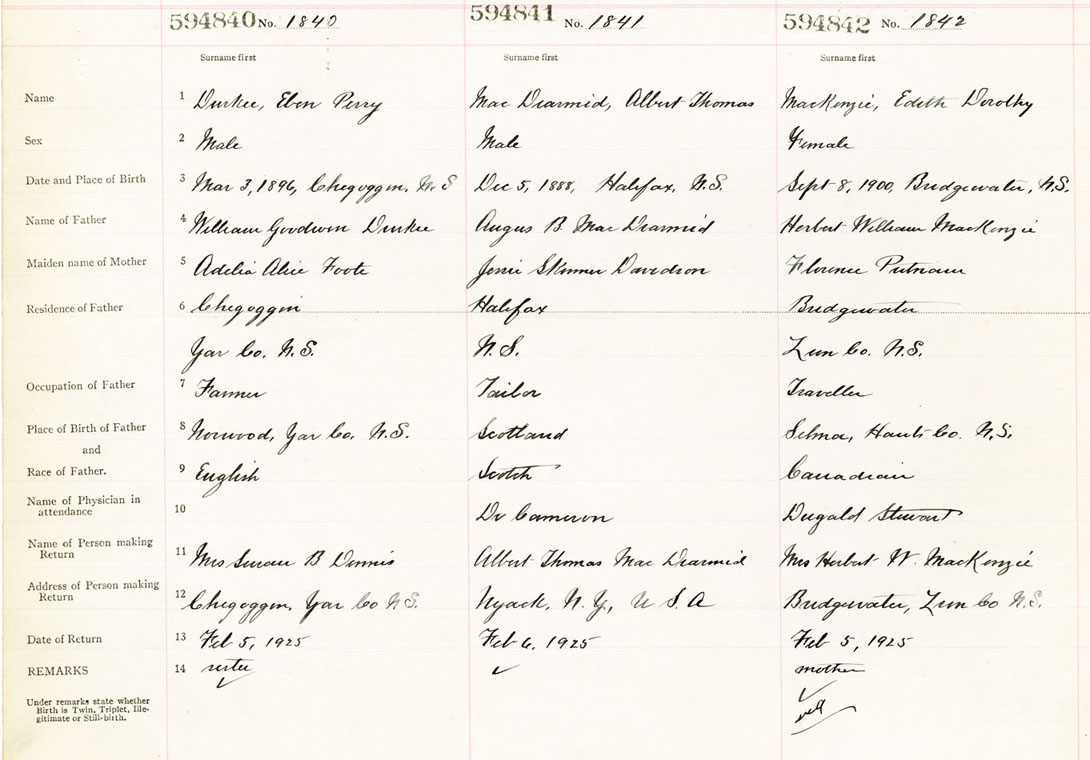 594840 No. 1840 594841 No. 1841 594842 No. 1842
Surname first Surname first Surname first
Name 1 Durkee, Eben Perry Mac Diarmid, Albert Thomas MacKenzie, Edith Dorothy
Sex 2 Male Male Female
Date and Place of Birth 3 Mar 3, 1896, Chegoggin, N. S Dec 5, 1888, Halifax, N.S. Sept 8, 1900, Bridgewater, N.S.
Name of Father 4 William Goodwin Durkee Angus B. Mac Diarmid Herbert William MacKenzie
Maiden name of Mother 5 Adelia Alice Foote Jessie Skinner Davidson Florence Putnam
Residence of Father 6 Chegoggin Halifax Bridgewater
Yar Co. N.S. N.S. Lun Co. N.S.
Occupation of Father 7 Farmer Tailor Traveller
Place of Birth of Father 8 Norwood, Yar Co. N.S. Scotland Selma, Hants Co. N.S.
and
Race of Father. 9 English Scotch Canadian
Name of Physician in
attendance 10 Dr Cameron Dugald Stewart
Name of Person making
Return 11 Mrs Susan B Dennis Albert Thomas Mac Diarmid Mrs Herbert W. MacKenzie
Address of Person making
Return 12 Chegoggin, Yar Co N.S. Nyack, N.Y., U S A Bridgewater, Lun Co N.S.
Date of Return 13 Feb 5, 1925 Feb 6, 1925 Feb 5, 1925
REMARKS 14 sister mother
Under remarks state whether
Birth is Twin, Triplet, Ille-
gitimate or Still-birth.